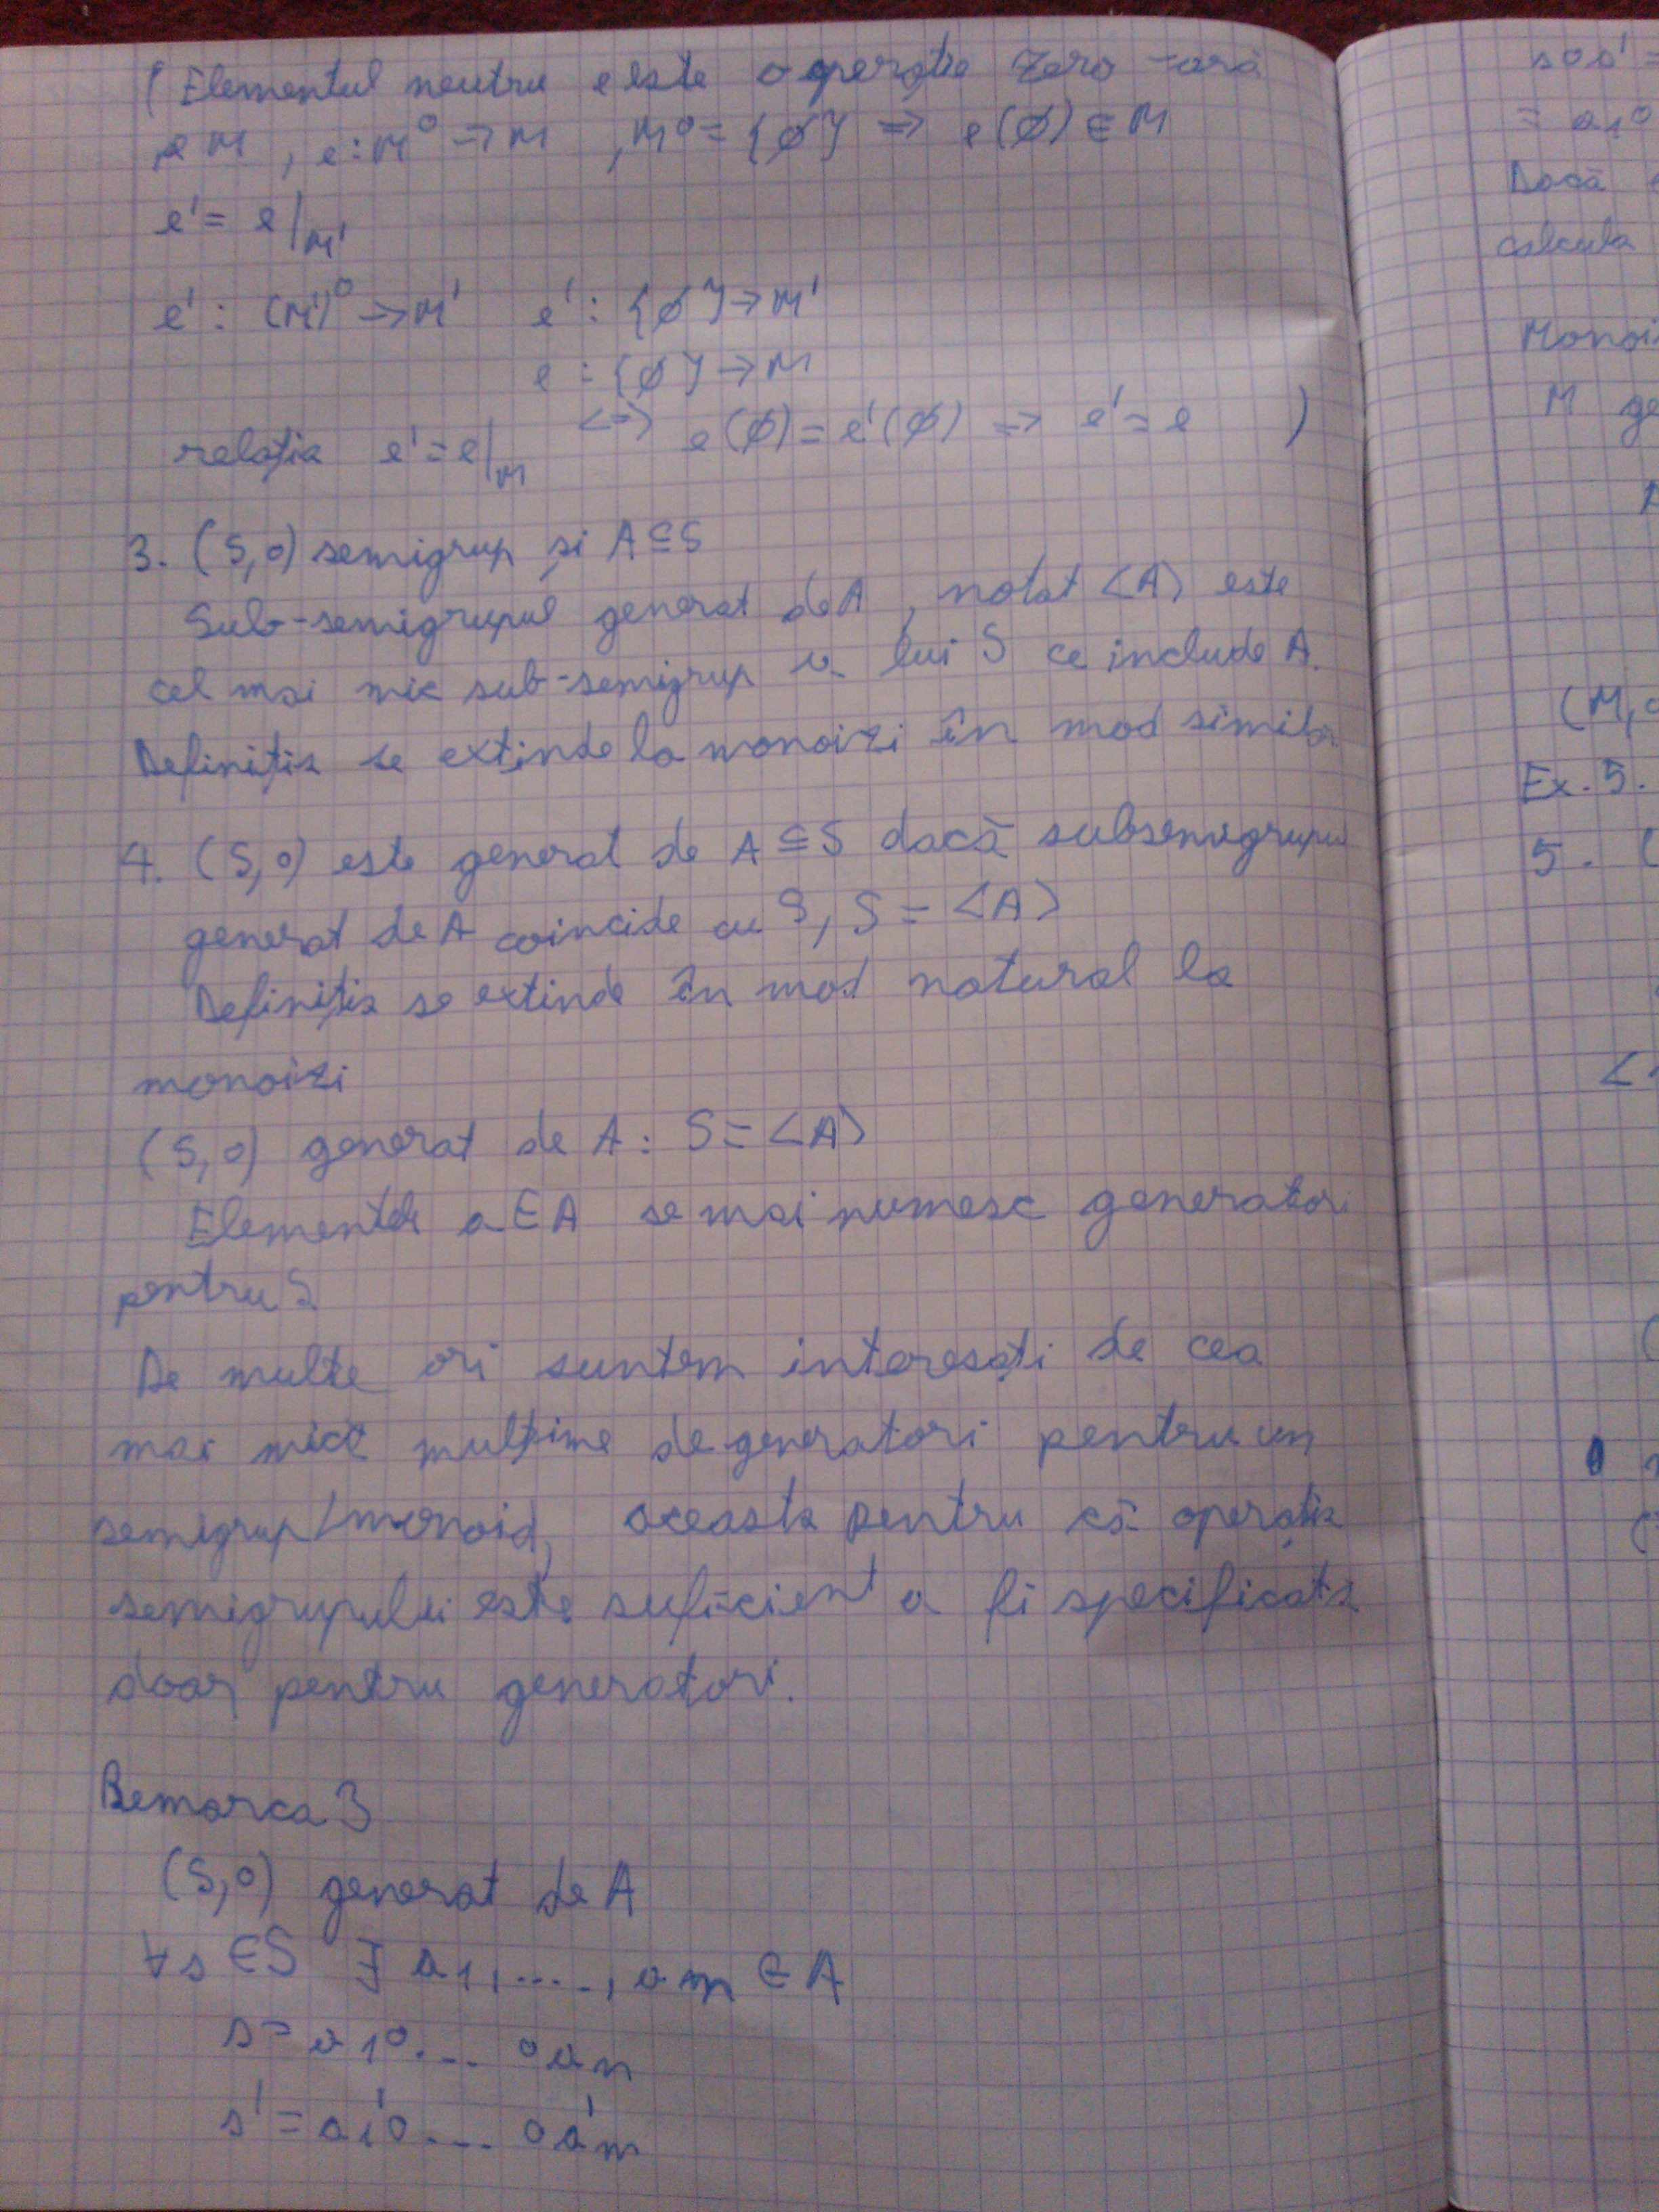 ( Elementul neutru e este operație zero-ară
pe M, e : M⁰ → M, M⁰ = {∅} ⇒ e(∅) ∈ M
e' = e|M'
e' : (M')⁰ → M' e' : {∅} → M'
e : {∅} → M
relația e' = e|M <=> e(∅) = e'(∅) ⇒ e' = e )
3. (S,∘) semigrup și A ⊆ S
Sub-semigrupul generat de A, notat <A> este
cel mai mic sub-semigrup a lui S ce include A.
Definiția se extinde la monoizi în mod similar
4. (S,∘) este generat de A ⊆ S dacă subsemigrupul
generat de A coincide cu S, S = <A>
Definiția se extinde în mod natural la
monoizi
(S,∘) generat de A : S = <A>
Elementele a ∈ A se mai numesc generatori
pentru S
De multe ori suntem interesați de cea
mai mică mulțime de generatori pentru un
semigrup/monoid, aceasta pentru că operația
semigrupului este suficient a fi specificată
doar pentru generatori.
Remarca 3
(S,∘) generat de A
∀ s ∈ S ∃ a1, ...., am ∈ A
s = a1∘... ∘an
s' = a1'∘... ∘a'm
s∘s' =
= a1∘
Dacă
calcula
M ge
(M,
Ex. 5.
5. (